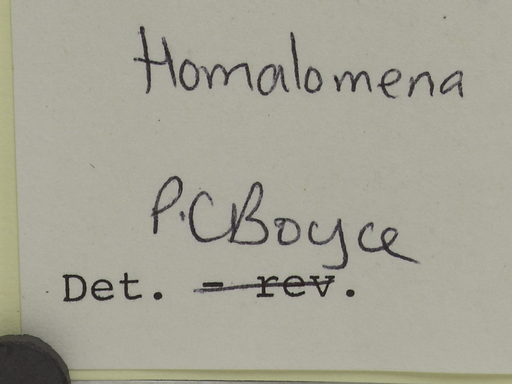 Homalomena
P.C Boyce
Det. - rev.